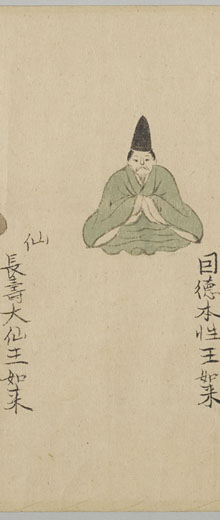 目德本性王如来
仙
長壽大仙王如来